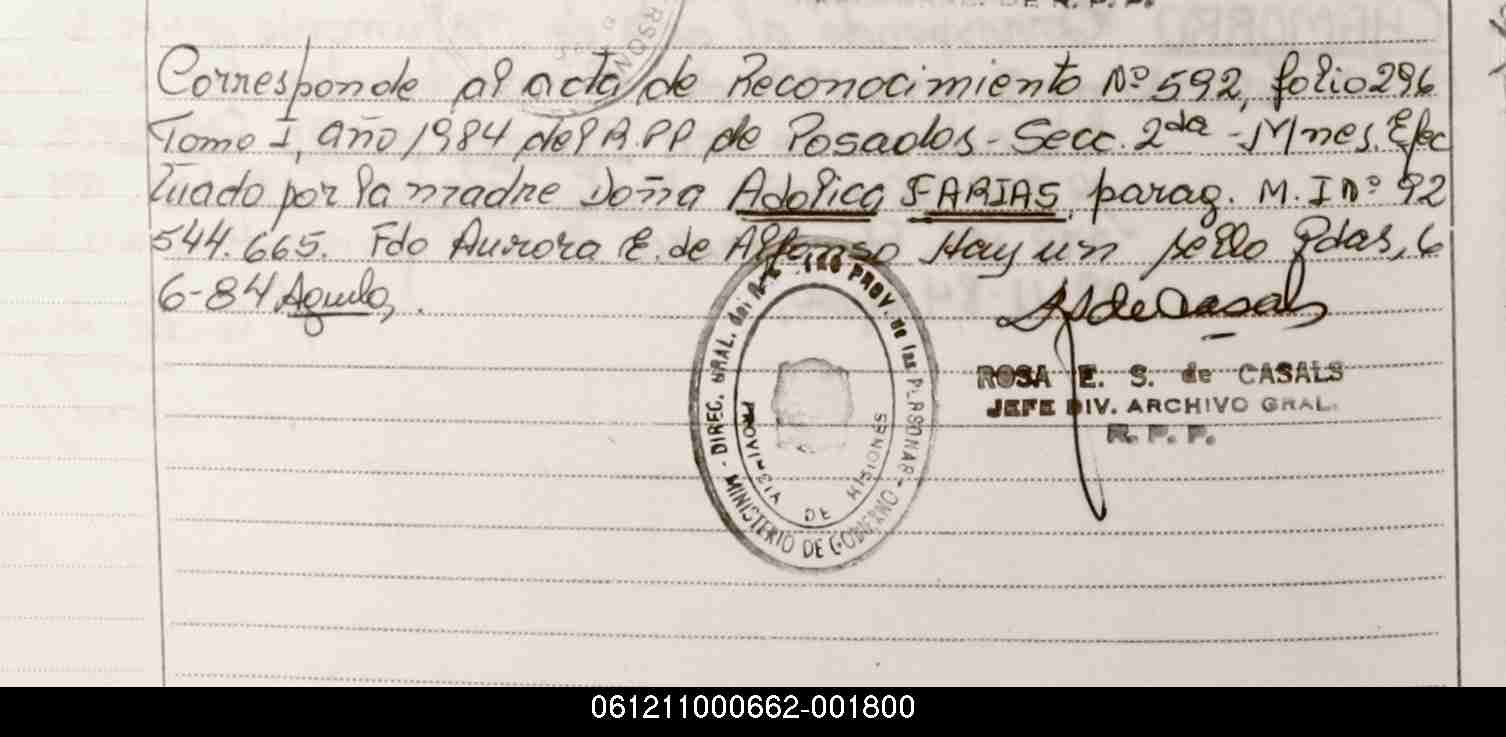 Corresponde al acta de Reconocimiento Nº 592, folio 296
Tomo I, año 1984 del R.P.P de Posadas - Secc. 2da - Mnes. Efec
tuado por la madre Doña Adolica FARIAS, parag. M. I Nº 92
544.665. Fdo Aurora E. de Alfonso Hay un sello Pdas, 6
6-84
ROSA E. S. de CASALS
JEFE DIV. ARCHIVO GRAL.
R. P. P.
DIREC. GRAL. del PROV. de las PERSONAS
MINISTERIO DE GOBIERNO
PROVINCIA DE MISIONES
061211000662-001800